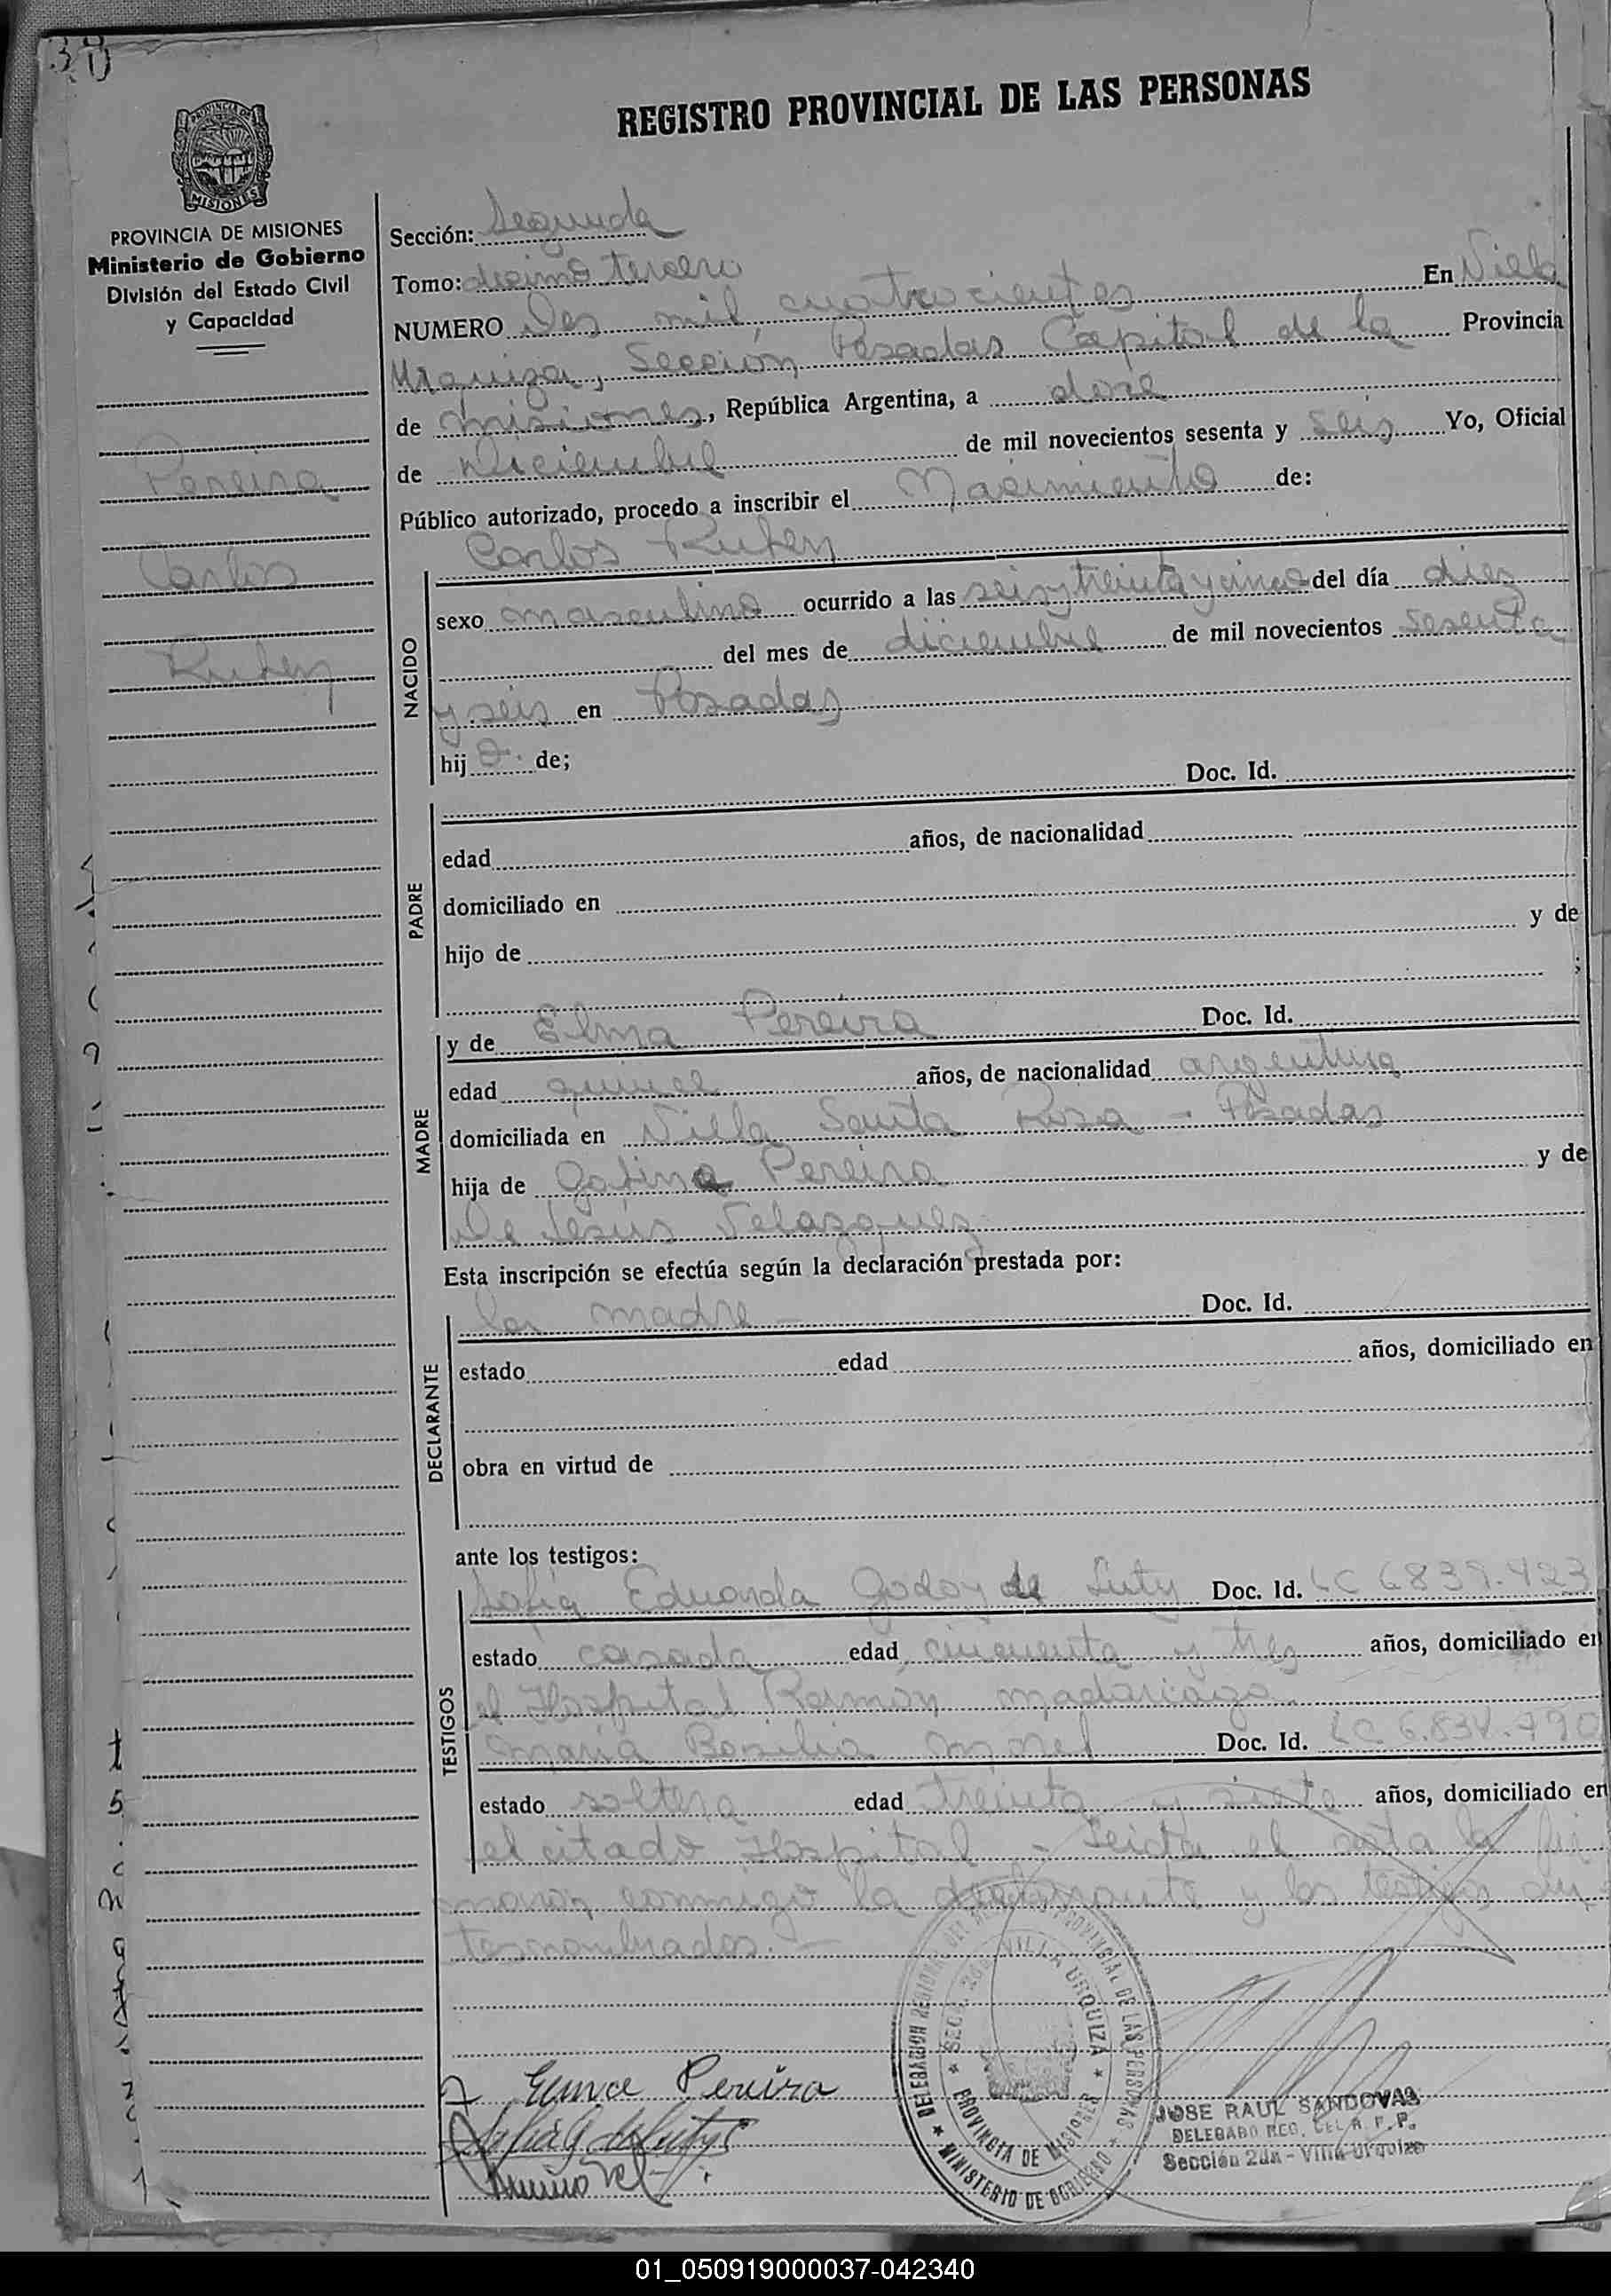 REGISTRO PROVINCIAL DE LAS PERSONAS
PROVINCIA DE MISIONES
MISIONES
PROVINCIA DE MISIONES
Ministerio de Gobierno
División del Estado Civil
y Capacidad
Pereira
Carlos
Ruben
Sección: Segunda
Tomo: decimo tercero
NUMERO Dos mil cuatrocientos En Villa
Urquiza, Sección Posadas Capital de la Provincia
de misiones, República Argentina, a doce
de Diciembre de mil novecientos sesenta y seis Yo, Oficial
Público autorizado, procedo a inscribir el Nacimiento de:
Carlos Ruben
NACIDO
sexo masculino ocurrido a las seis y treinta y cinco del día diez
del mes de diciembre de mil novecientos sesenta
y seis en Posadas
hij o. de;
PADRE
Doc. Id.
edad años, de nacionalidad
domiciliado en
hijo de y de
;
MADRE
y de Elma Pereira Doc. Id.
edad quince años, de nacionalidad argentina
domiciliada en Villa Santa Rosa - Posadas
hija de Pereira y de
De Jesús Velazquez
Esta inscripción se efectúa según la declaración prestada por:
DECLARANTE
la madre - Doc. Id.
estado edad años, domiciliado en
obra en virtud de
ante los testigos:
TESTIGOS
Sofia Eduarda Godoy de Luty Doc. Id. LC 6839.423
estado casada edad cincuenta y tres años, domiciliado en
el Hospital Ramón madariaga
maria Basilia Doc. Id. LC 6.834.790
estado soltera edad treinta y siete años, domiciliado en
el citado Hospital - Leida el acta la fir
maron conmigo la declarante y los testigos an
tesnombrados. -
Pereira
DELEGACION REGIONAL DEL REGISTRO PROVINCIAL DE LAS PERSONAS
VILLA URQUIZA
PROVINCIA DE MISIONES
MINISTERIO DE GOBIERNO
JOSE RAUL SANDOVAL
DELEGADO REG. DEL R. P. P.
Sección 2da - Villa Urquiza
01_050919000037-042340